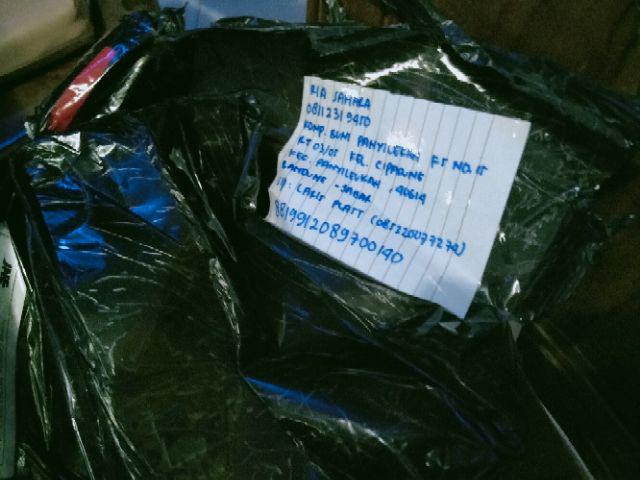 RIA SAHARA
08112319450
KOMP. BUMI PANYILEUKAN F5 NO. 15
RT 03/05 KEL. CIPADUNG
KEC. PANYILEUKAN . 40614
BANDUNG - JABAR
IP : LARIS PLATT (085220077272)
8819912089700140
JNE